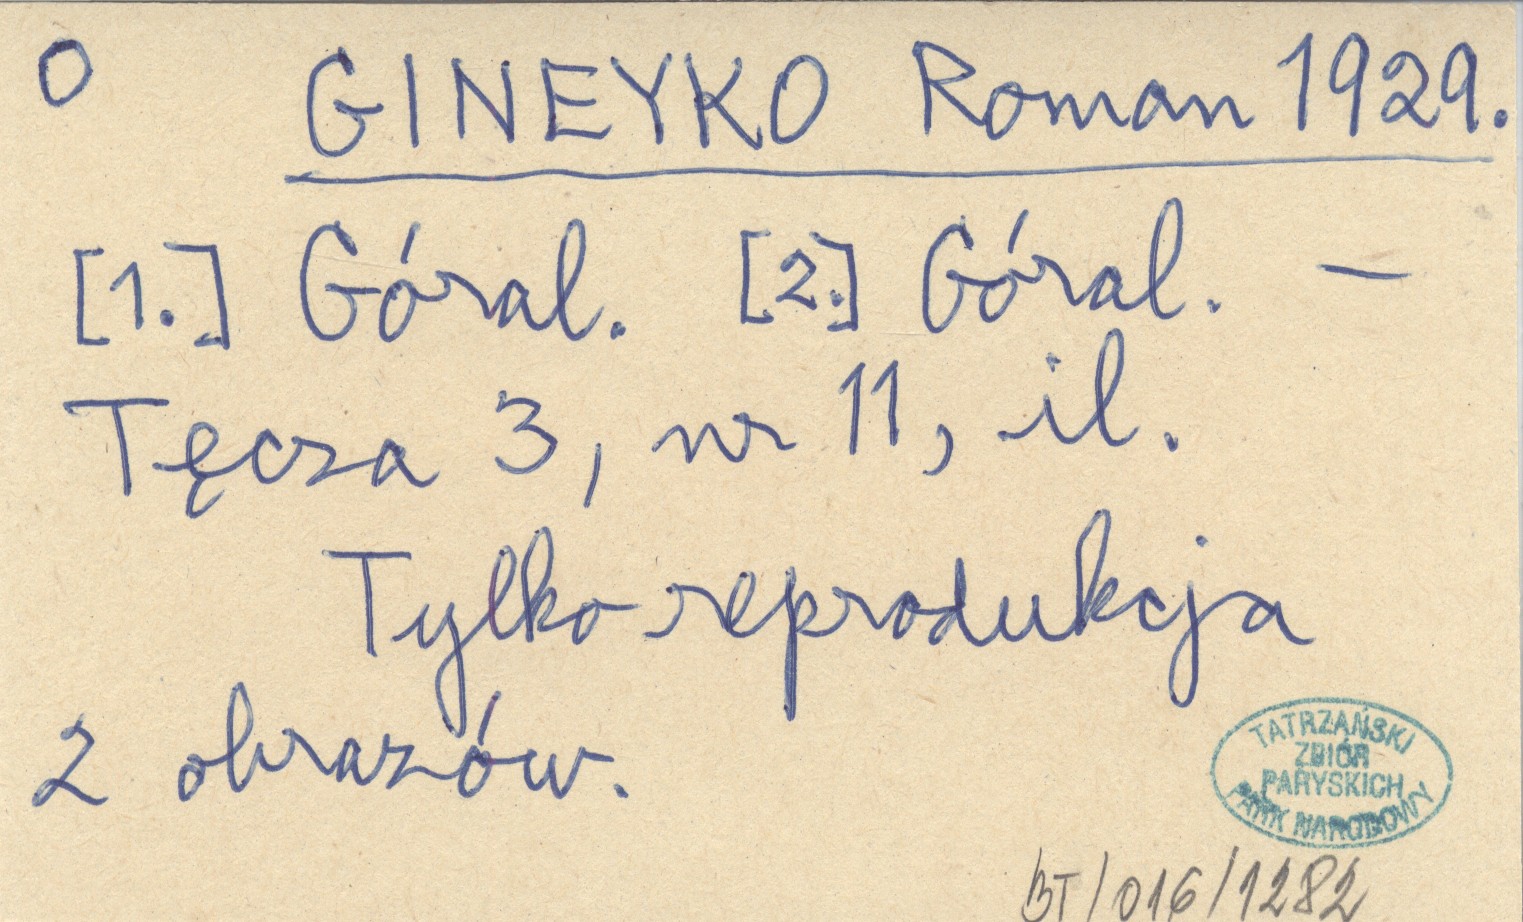 O GINEYKO Roman 1929.
[1.] Góral. [2.] Góral. —
Tęcza 3, nr 11, il.
Tylko reprodukcja
2 obrazów.
TATRZAŃSKI
ZBIÓR
PARYSKICH
PARK NARODOWY
BT/016/1282